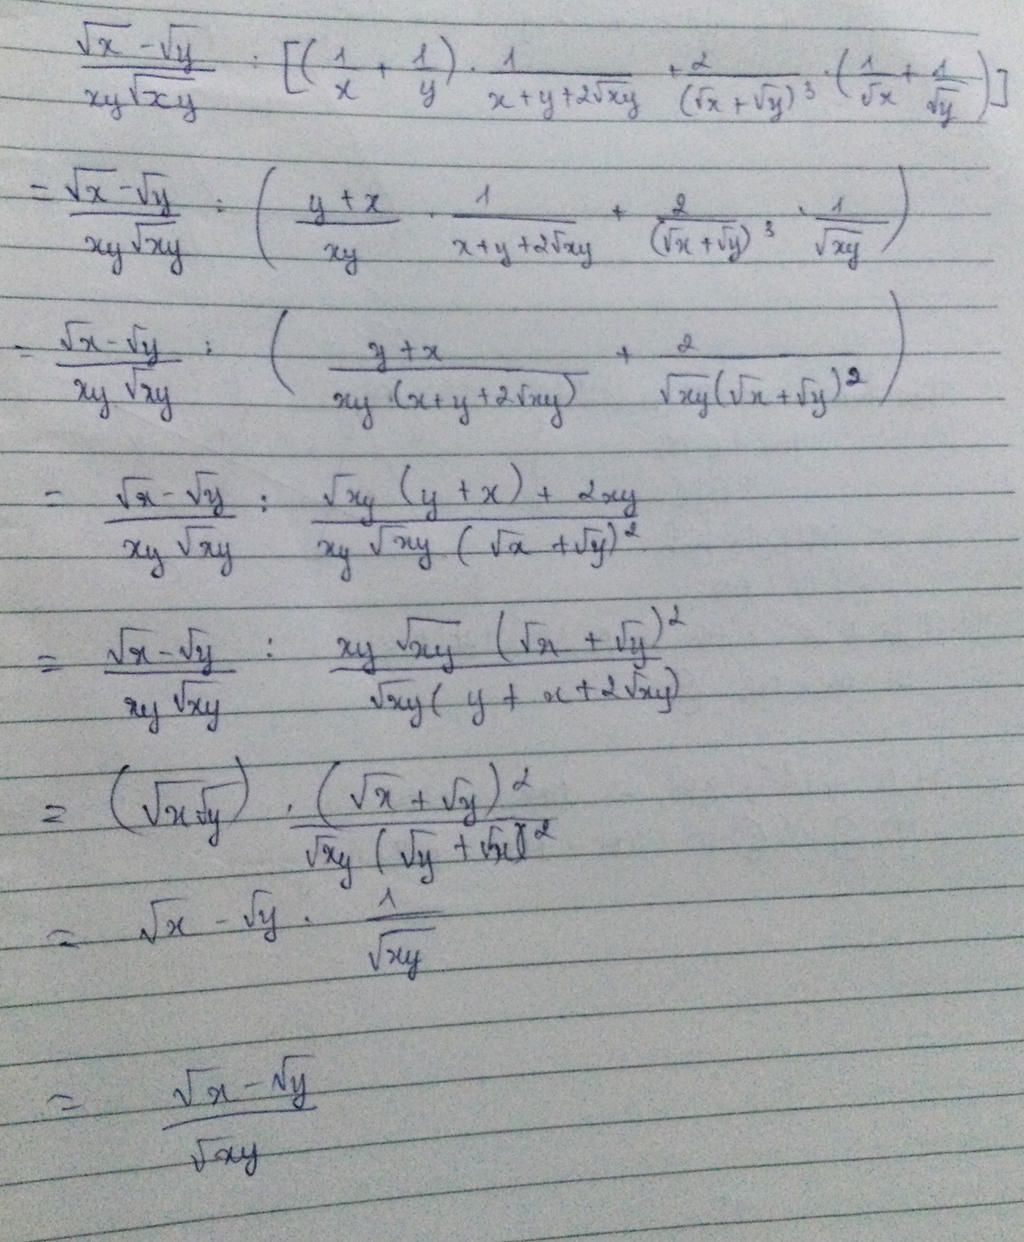 (√x - √y)/(xy√xy) : [(1/x + 1/y) · 1/(x + y + 2√xy) + 2/(√x + √y)³ · (1/√x + 1/√y)]
= (√x - √y)/(xy√xy) : ((y + x)/(xy) · 1/(x + y + 2√xy) + 2/(√x + √y)³ · 1/√xy)
= (√x - √y)/(xy√xy) : ((y + x)/(xy · (x + y + 2√xy)) + 2/(√xy(√x + √y)²))
= (√x - √y)/(xy√xy) : (√xy (y + x) + 2xy)/(xy√xy (√x + √y)²)
= (√x - √y)/(xy√xy) : (xy√xy (√x + √y)²)/(√xy (y + x + 2√xy))
= (√x√y) · (√x + √y)²/(√xy (√y + √x)²)
= √x - √y · 1/√xy
= (√x - √y)/√xy